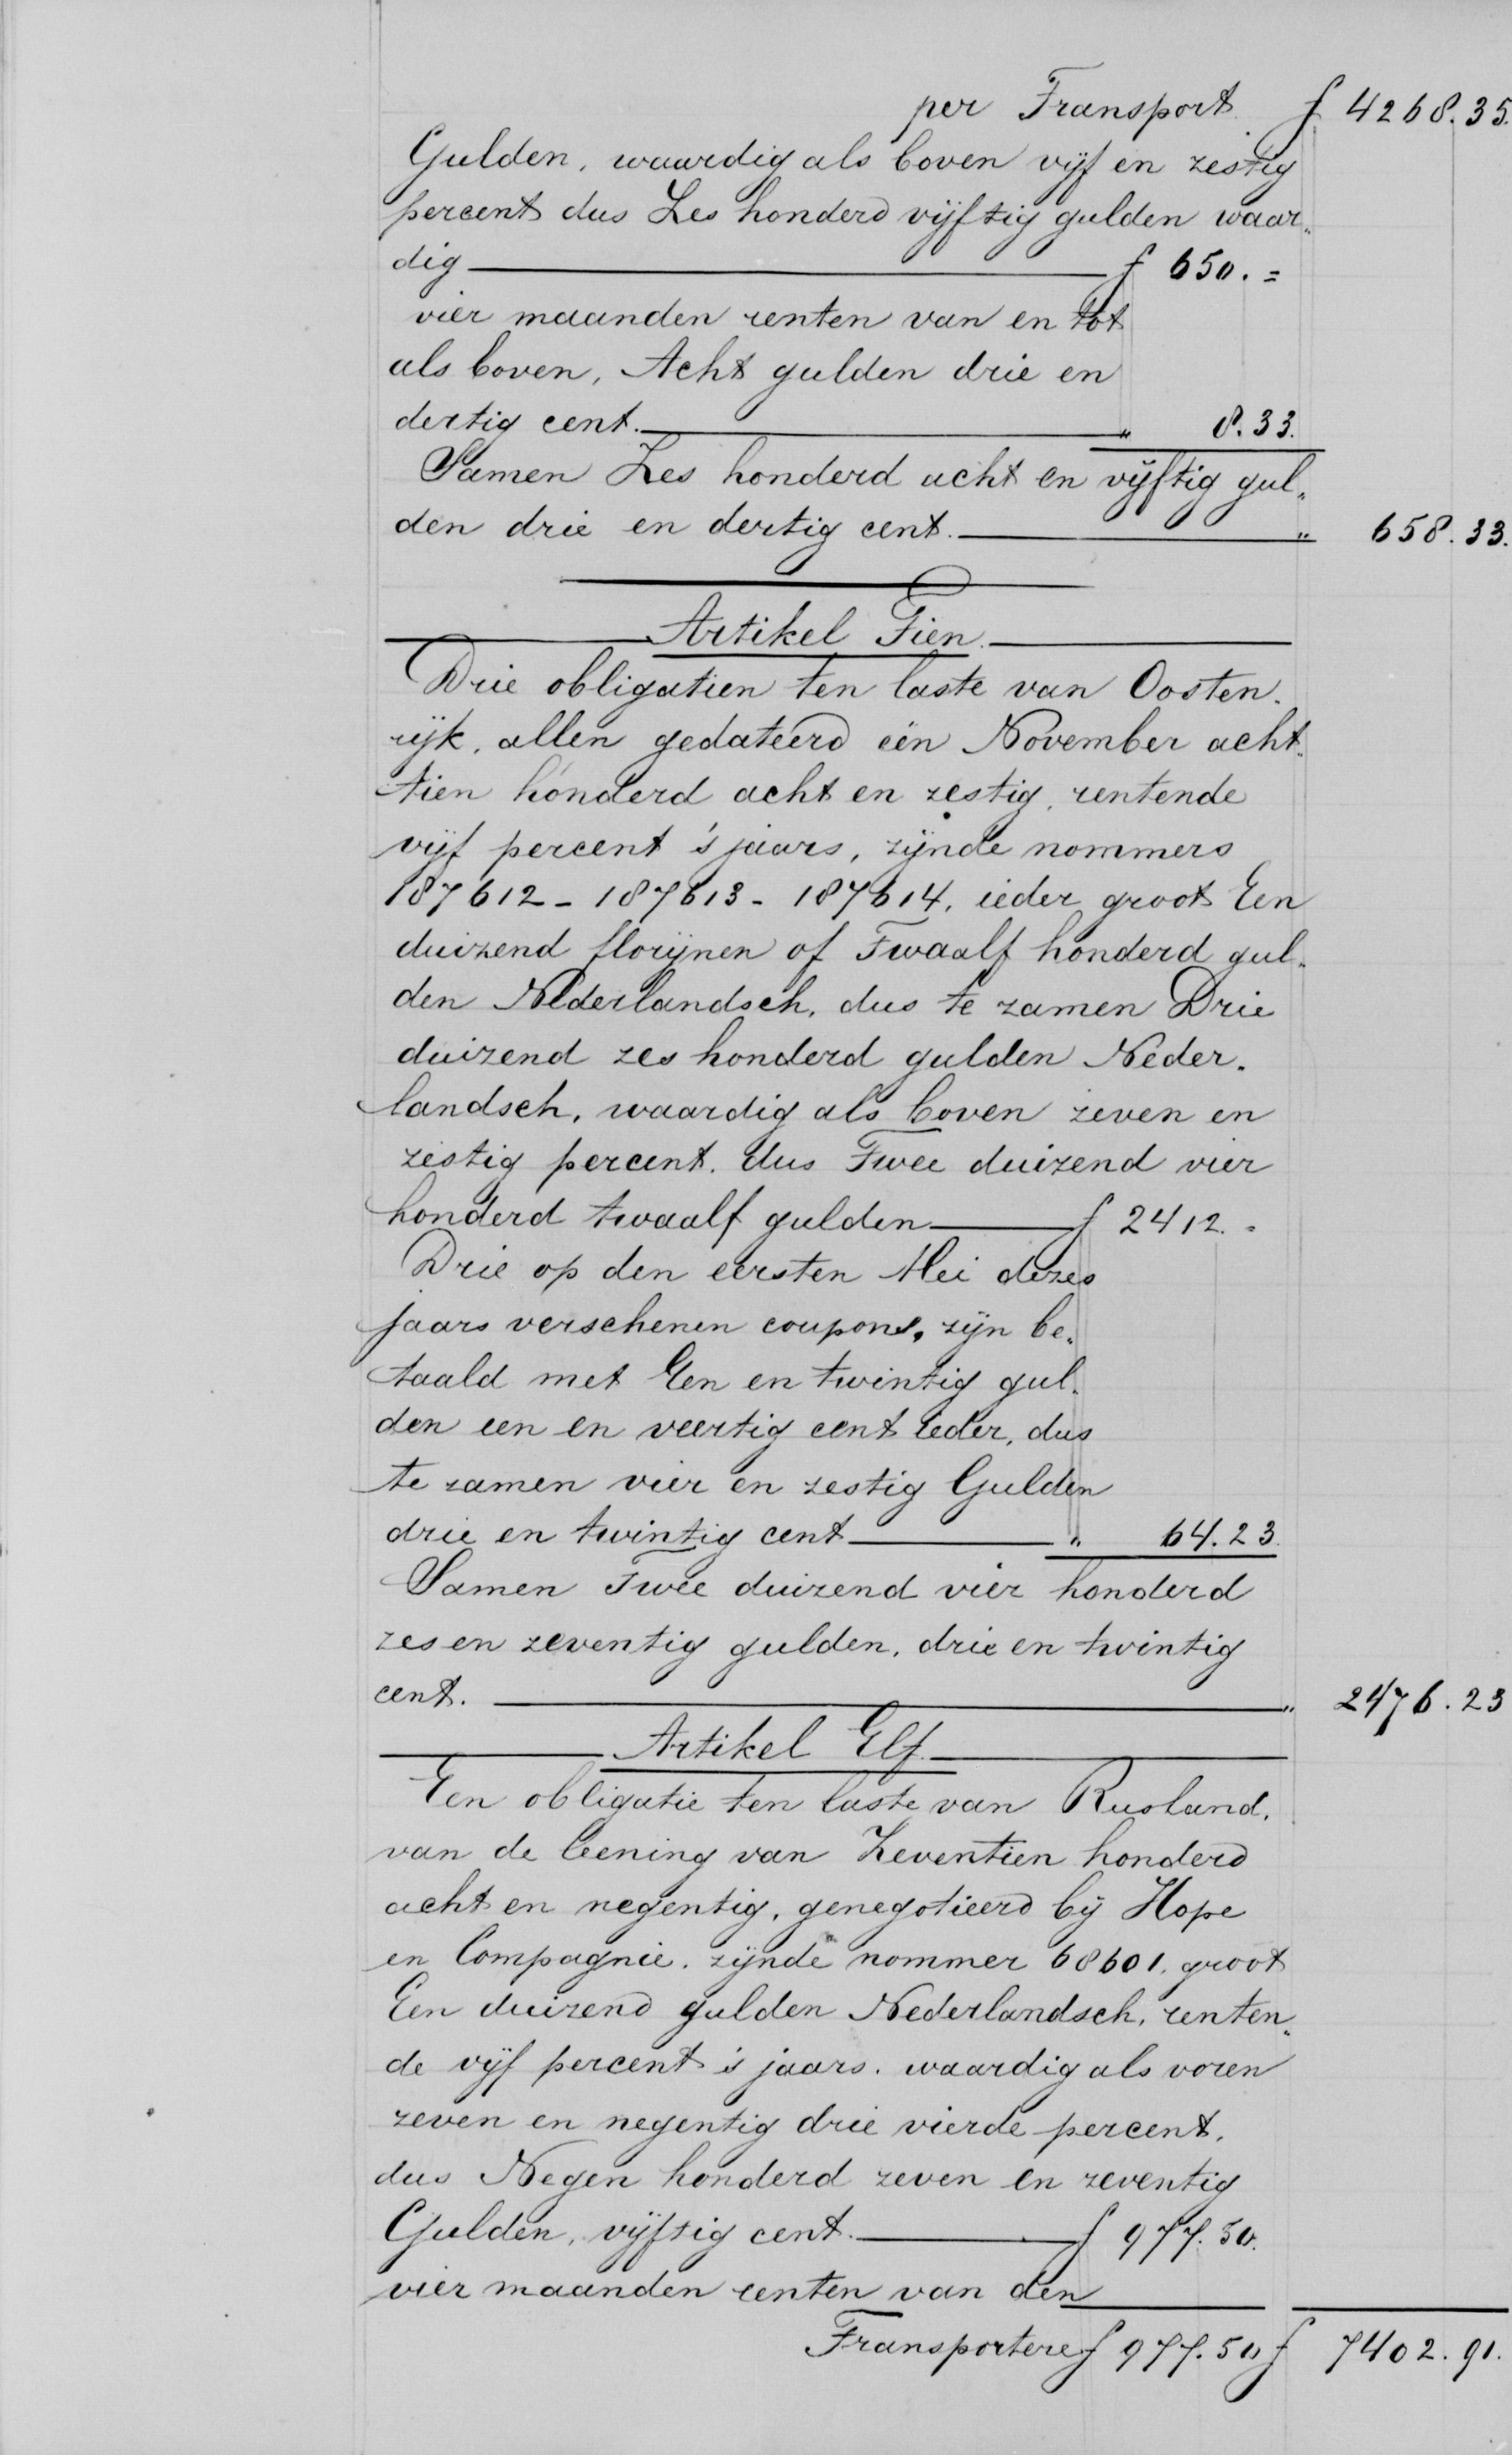 per Transport f 4268.35.
Gulden, waardig als boven vijf en zestig
percent dus Zes honderd vijftig gulden waar„
dig f 650.=
vier maanden renten van en tot
als boven, Acht gulden drie en
dertig cent. „ 8.33.
Samen Zes honderd acht en vijftig gul„
den drie en dertig cent. „ 658.33.
Artikel Tien.
Drie obligatien ten laste van Oosten„
rijk, allen gedateerd één November acht„
tien honderd acht en zestig, rentende
vijf percent 's jaars, zijnde nommers
187612 - 187613 - 187614, ieder groot Een
duizend florijnen of Twaalf honderd gul„
den Nederlandsch, dus te zamen Drie
duizend zes honderd gulden Neder„
landsch, waardig als boven zeven en
zestig percent. dus Twee duizend vier
honderd twaalf gulden f 2412.=
Drie op den eersten Mei dezes
jaars verschenen coupons, zijn be„
taald met Een en twintig gul„
den een en veertig cent ieder, dus
te zamen vier en zestig Gulden
drie en twintig cent „ 64.23.
Samen Twee duizend vier honderd
zes en zeventig gulden, drie en twintig
cent. „ 2476.23
Artikel Elf.
Een obligatie ten laste van Rusland,
van de leening van Zeventien honderd
acht en negentig, genegotieerd bij Hope
en Compagnie. zijnde nommer 68601, groot
Een duizend gulden Nederlandsch, renten„
de vijf percent 's jaars. waardig als voren
zeven en negentig drie vierde percent,
dus Negen honderd zeven en zeventig
Gulden, vijftig cent. f 977.50.
vier maanden renten van den
Transportere f 977.50 f 7402.91.